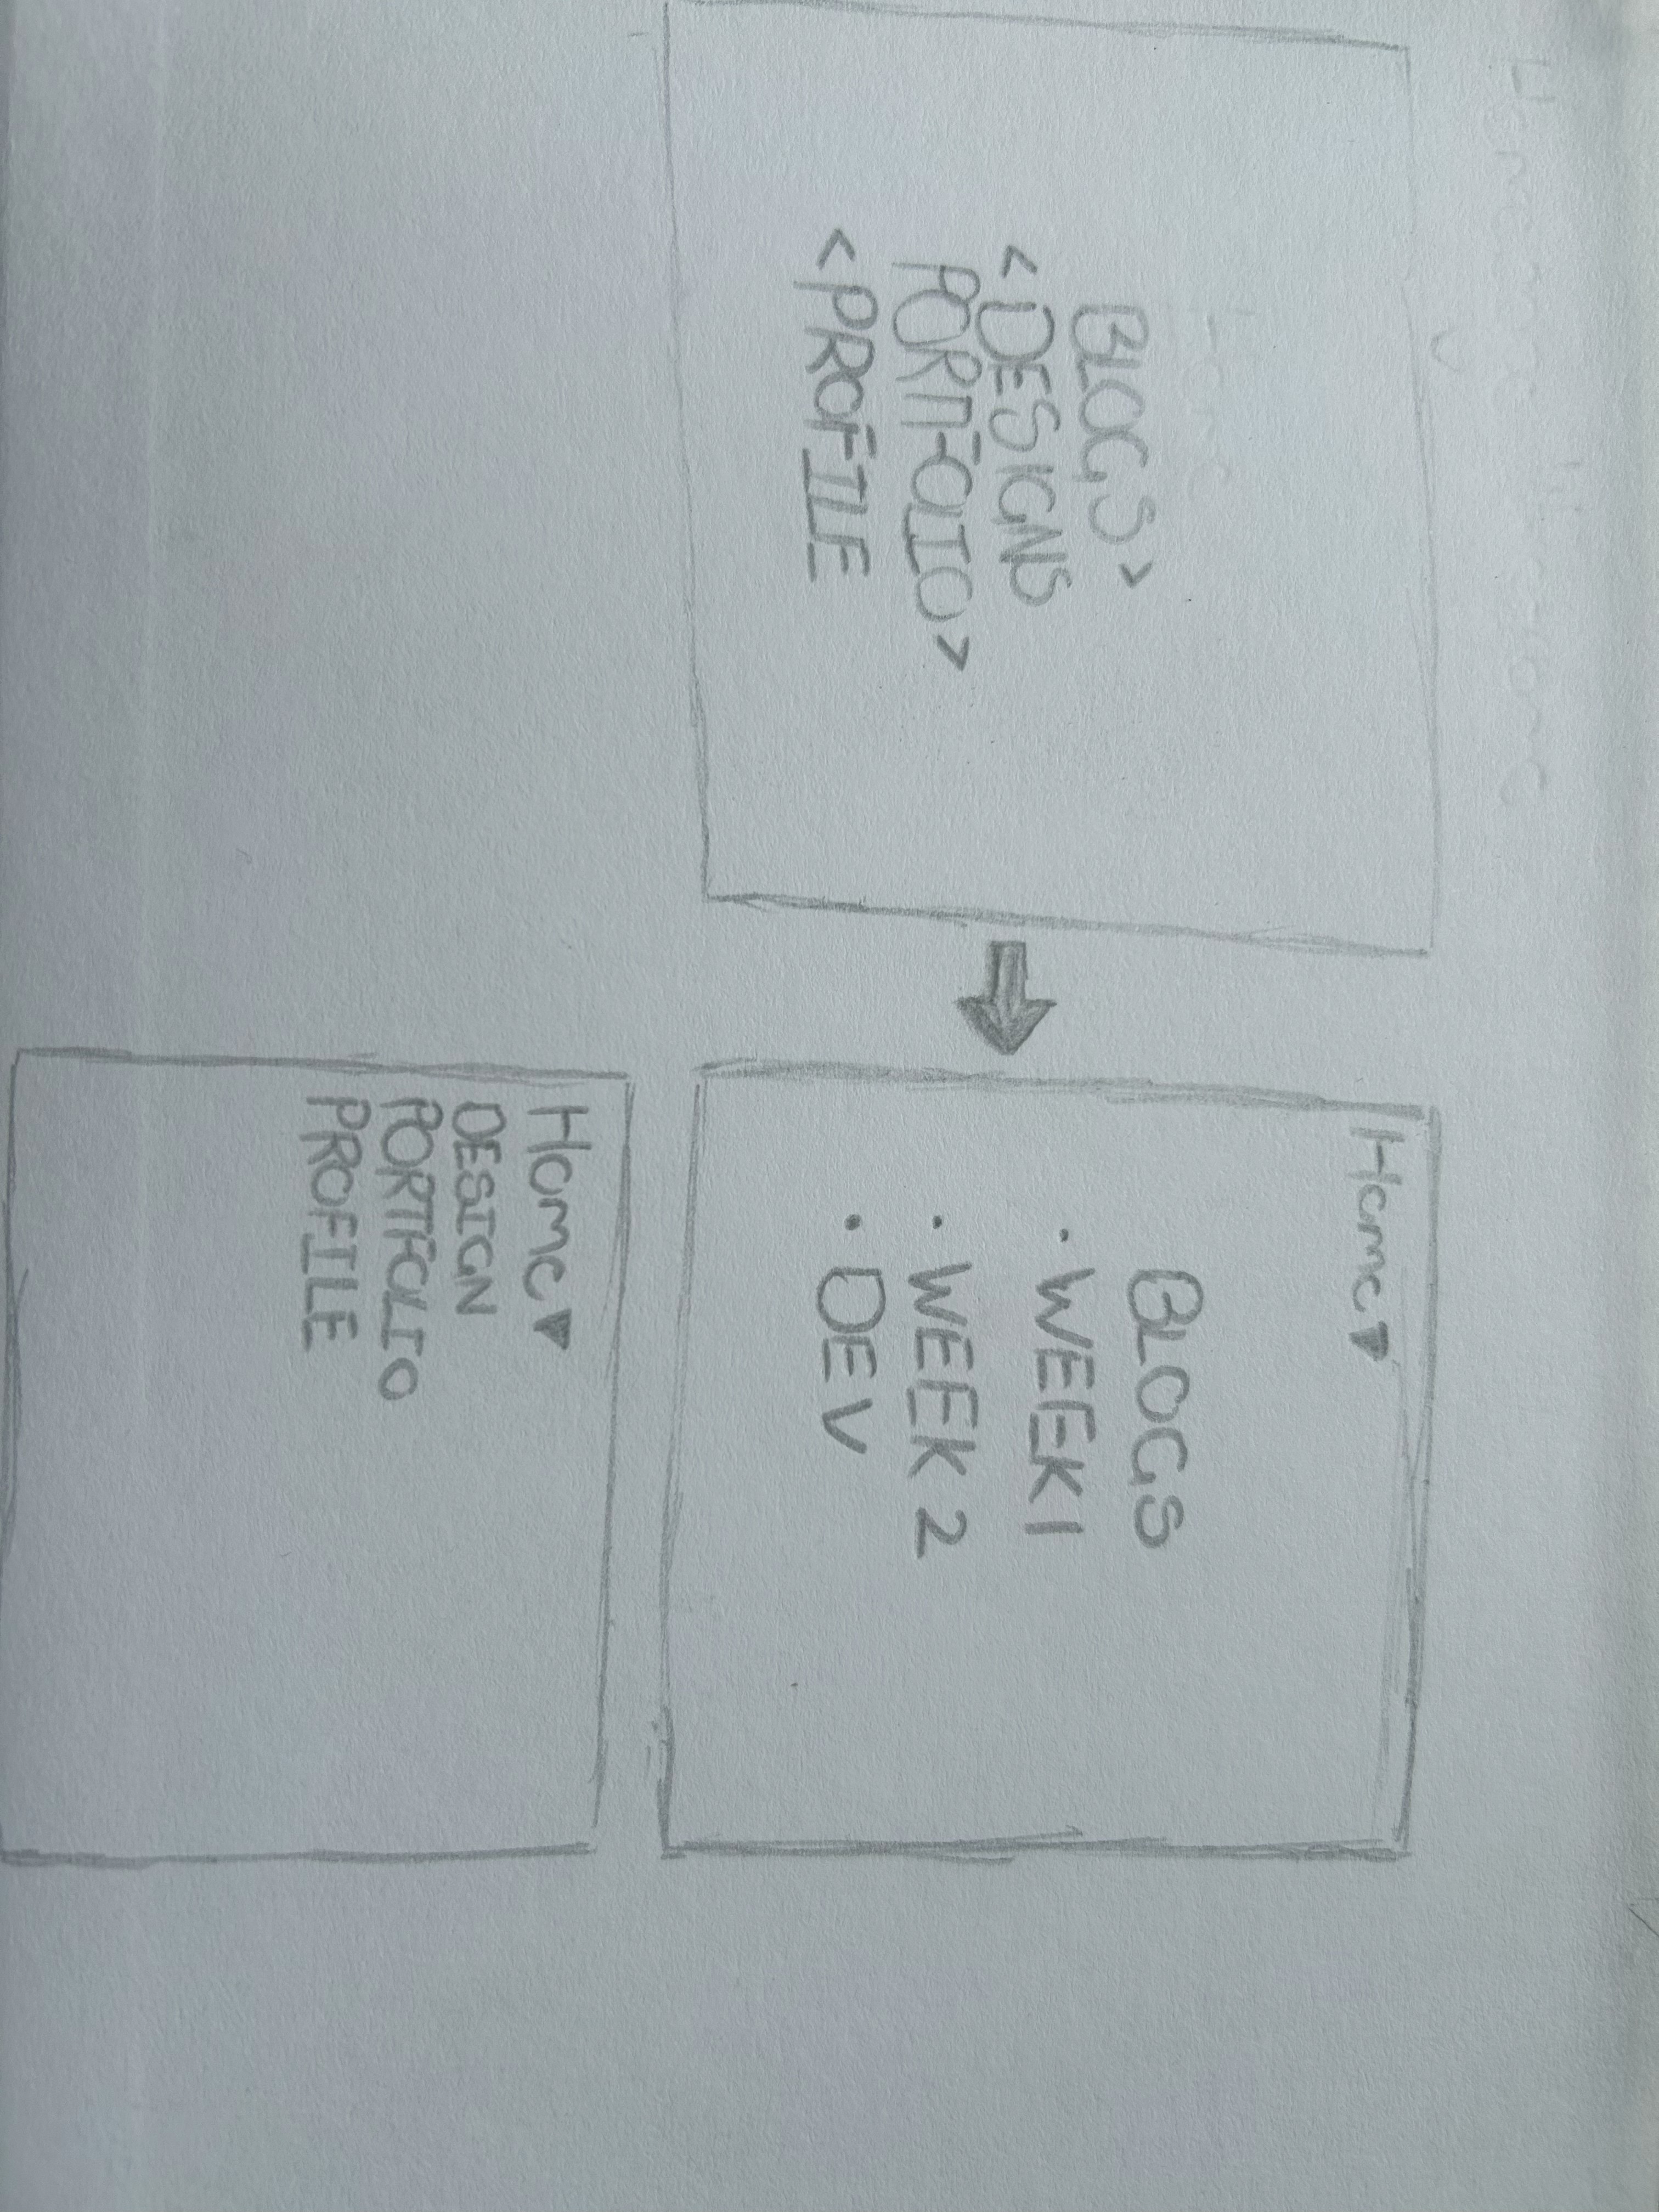 BLOGS>
<DESIGNS
PORTFOLIO>
<PROFILE
Home▼
BLOGS
· WEEK 1
· WEEK 2
· DEV
Home▼
DESIGN
PORTFOLIO
PROFILE